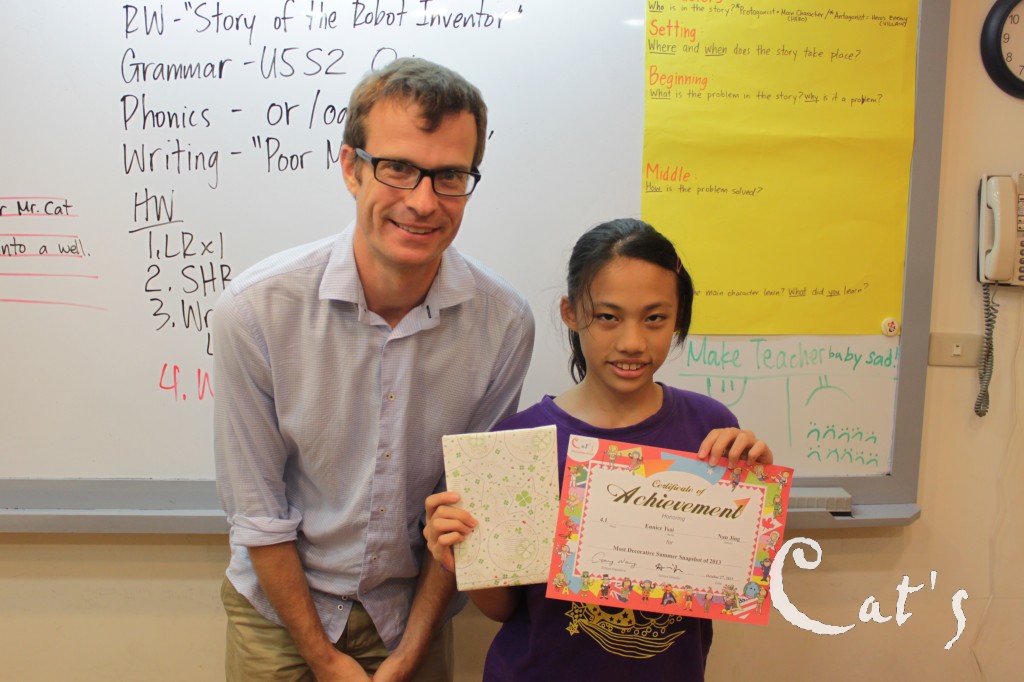 RW - "Story of the Robot Inventor"
Grammar - U5 S2
Phonics - or/oa
Writing - "Poor M
HW
1. LR x 1
2. SHR
3. Wr
4. W
r Mr. Cat
nto a well.
Who is in the story? *Protagonist = Main Character /*Antagonist =
Setting:
Where and when does the story take place?
Beginning:
What is the problem in the story? Why is it a problem?
Middle:
How is the problem solved?
main character learn? What did you learn?
Make Teacher baby sad!
10
9
8
7
Cat's
Certificate of
Achievement
Honoring
4.1 Eunice Tsai Nan Jing
for
Most Decorative Summer Snapshot of 2013
Cat's